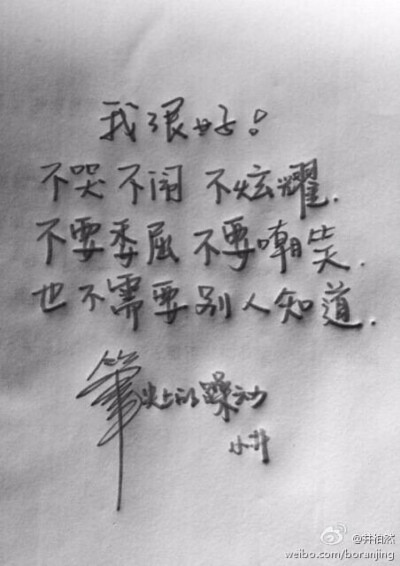 我很好!
不哭不闹 不炫耀.
不要委屈 不要嘲笑.
也不需要别人知道.
筆尖上的躁动
小井
@井柏然
weibo.com/boranjing